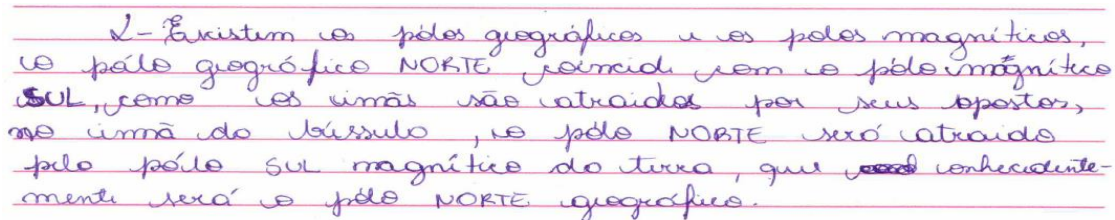 2- Existem os pólos geográficos e os polos magnéticos,
o pólo geográfico NORTE coincide com o pólo magnético
SUL, como os imãs são atraidos por seus opostos,
no imã da bússula, o pólo NORTE será atraido
pelo pólo SUL magnético da terra, que conhecidente-
mente será o pólo NORTE geográfico.